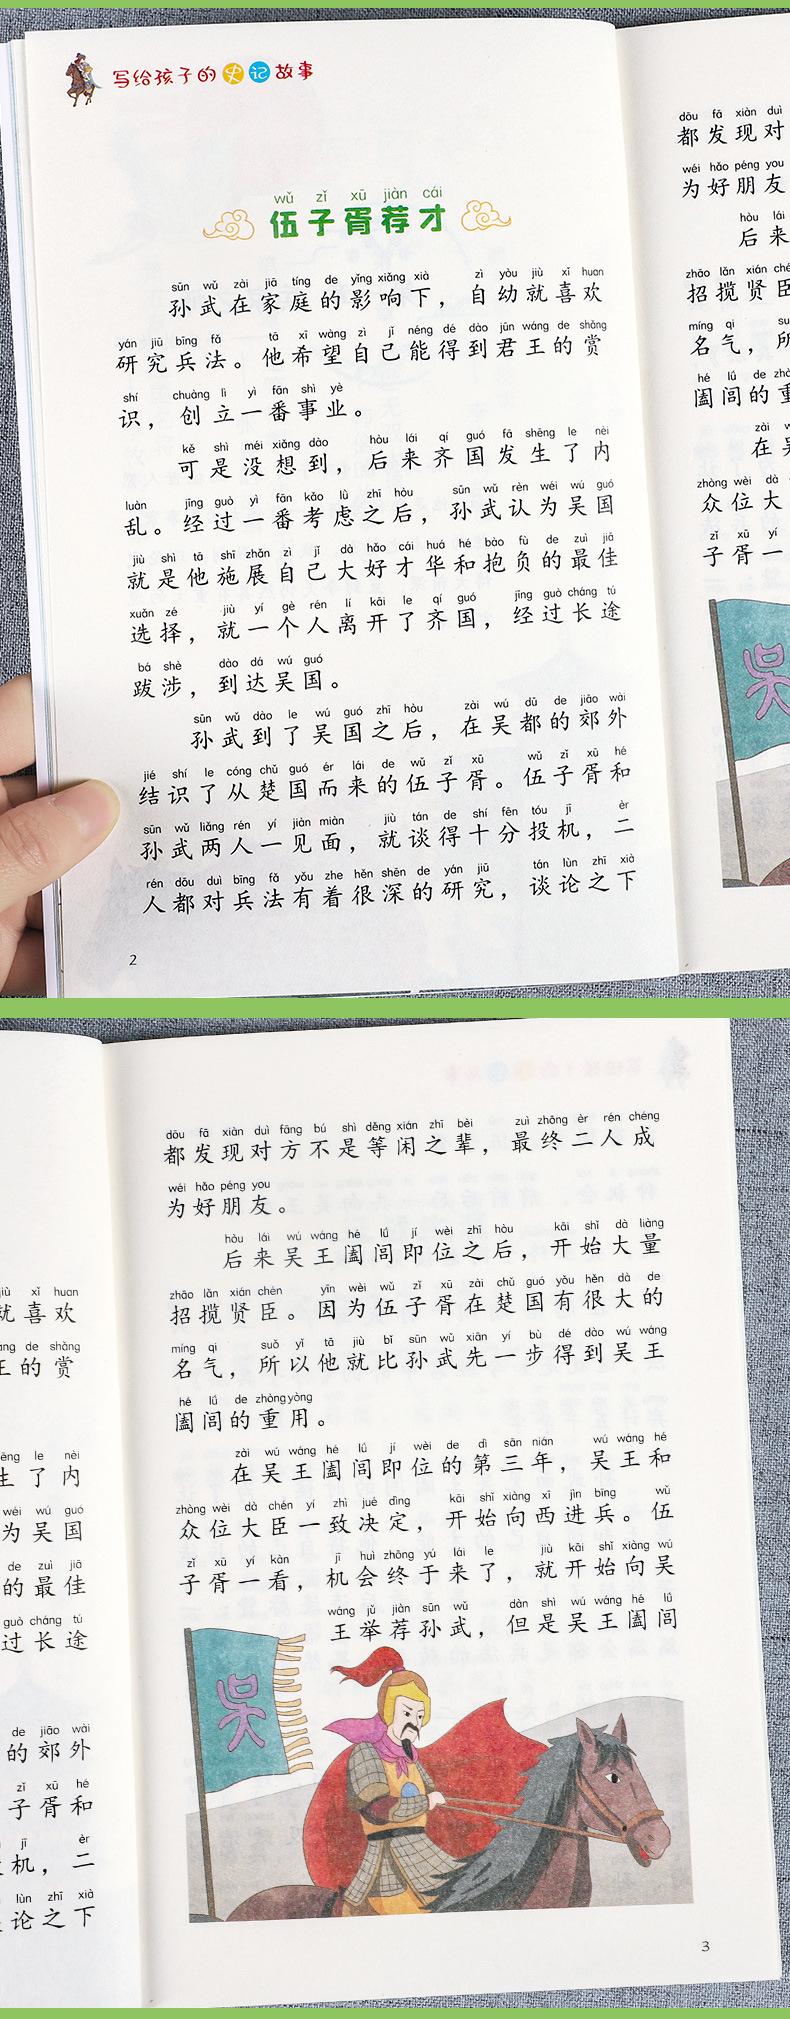 写给孩子的史记故事
wǔ zǐ xū jiàn cái
伍子胥荐才
sūn wǔ zài jiā tíng de yǐng xiǎng xià zì yòu jiù xǐ huan
孙武在家庭的影响下，自幼就喜欢
yán jiū bīng fǎ tā xī wàng zì jǐ néng dé dào jūn wáng de shǎng
研究兵法。他希望自己能得到君王的赏
shí chuàng lì yì fān shì yè
识，创立一番事业。
kě shì méi xiǎng dào hòu lái qí guó fā shēng le nèi
可是没想到，后来齐国发生了内
luàn jīng guò yì fān kǎo lǜ zhī hòu sūn wǔ rèn wéi wú guó
乱。经过一番考虑之后，孙武认为吴国
jiù shì tā shī zhǎn zì jǐ dà hǎo cái huá hé bào fù de zuì jiā
就是他施展自己大好才华和抱负的最佳
xuǎn zé jiù yí gè rén lí kāi le qí guó jīng guò cháng tú
选择，就一个人离开了齐国，经过长途
bá shè dào dá wú guó
跋涉，到达吴国。
sūn wǔ dào le wú guó zhī hòu zài wú dū de jiāo wài
孙武到了吴国之后，在吴都的郊外
jié shí le cóng chǔ guó ér lái de wǔ zǐ xū wǔ zǐ xū hé
结识了从楚国而来的伍子胥。伍子胥和
sūn wǔ liǎng rén yí jiàn miàn jiù tán de shí fēn tóu jī èr
孙武两人一见面，就谈得十分投机，二
rén dōu duì bīng fǎ yǒu zhe hěn shēn de yán jiū tán lùn zhī xià
人都对兵法有着很深的研究，谈论之下
2
dōu fā xiàn duì
都发现对
wéi hǎo péng you
为好朋友
hòu lái
后来
zhāo lǎn xián ché
招揽贤臣
míng qi su
名气，所
hé lǘ de zhò
阖闾的重
zài w
在吴
zhòng wèi dà
众位大
zǐ xū yí
子胥一
吴
dōu fā xiàn duì fāng bú shì děng xián zhī bèi zuì zhōng èr rén chéng
都发现对方不是等闲之辈，最终二人成
wéi hǎo péng you
为好朋友。
hòu lái wú wáng hé lǘ jí wèi zhī hòu kāi shǐ dà liàng
后来吴王阖闾即位之后，开始大量
zhāo lǎn xián chén yīn wèi wǔ zǐ xū zài chǔ guó yǒu hěn dà de
招揽贤臣。因为伍子胥在楚国有很大的
míng qi suǒ yǐ tā jiù bǐ sūn wǔ xiān yí bù dé dào wú wáng
名气，所以他就比孙武先一步得到吴王
hé lǘ de zhòng yòng
阖闾的重用。
zài wú wáng hé lǘ jí wèi de dì sān nián wú wáng hé
在吴王阖闾即位的第三年，吴王和
zhòng wèi dà chén yí zhì jué dìng kāi shǐ xiàng xī jìn bīng wǔ
众位大臣一致决定，开始向西进兵。伍
zǐ xū yí kàn jī huì zhōng yú lái le jiù kāi shǐ xiàng wú
子胥一看，机会终于来了，就开始向吴
wáng jǔ jiàn sūn wǔ dàn shì wú wáng hé lǘ
王举荐孙武，但是吴王阖闾
吴
3
iù xǐ huan
就喜欢
áng de shǎng
王的赏
ēng le nèi
生了内
wéi wú guó
为吴国
de zuì jiā
的最佳
guò cháng tú
过长途
de jiāo wài
的郊外
zǐ xū hé
子胥和
jī èr
机，二
lùn zhī xià
论之下